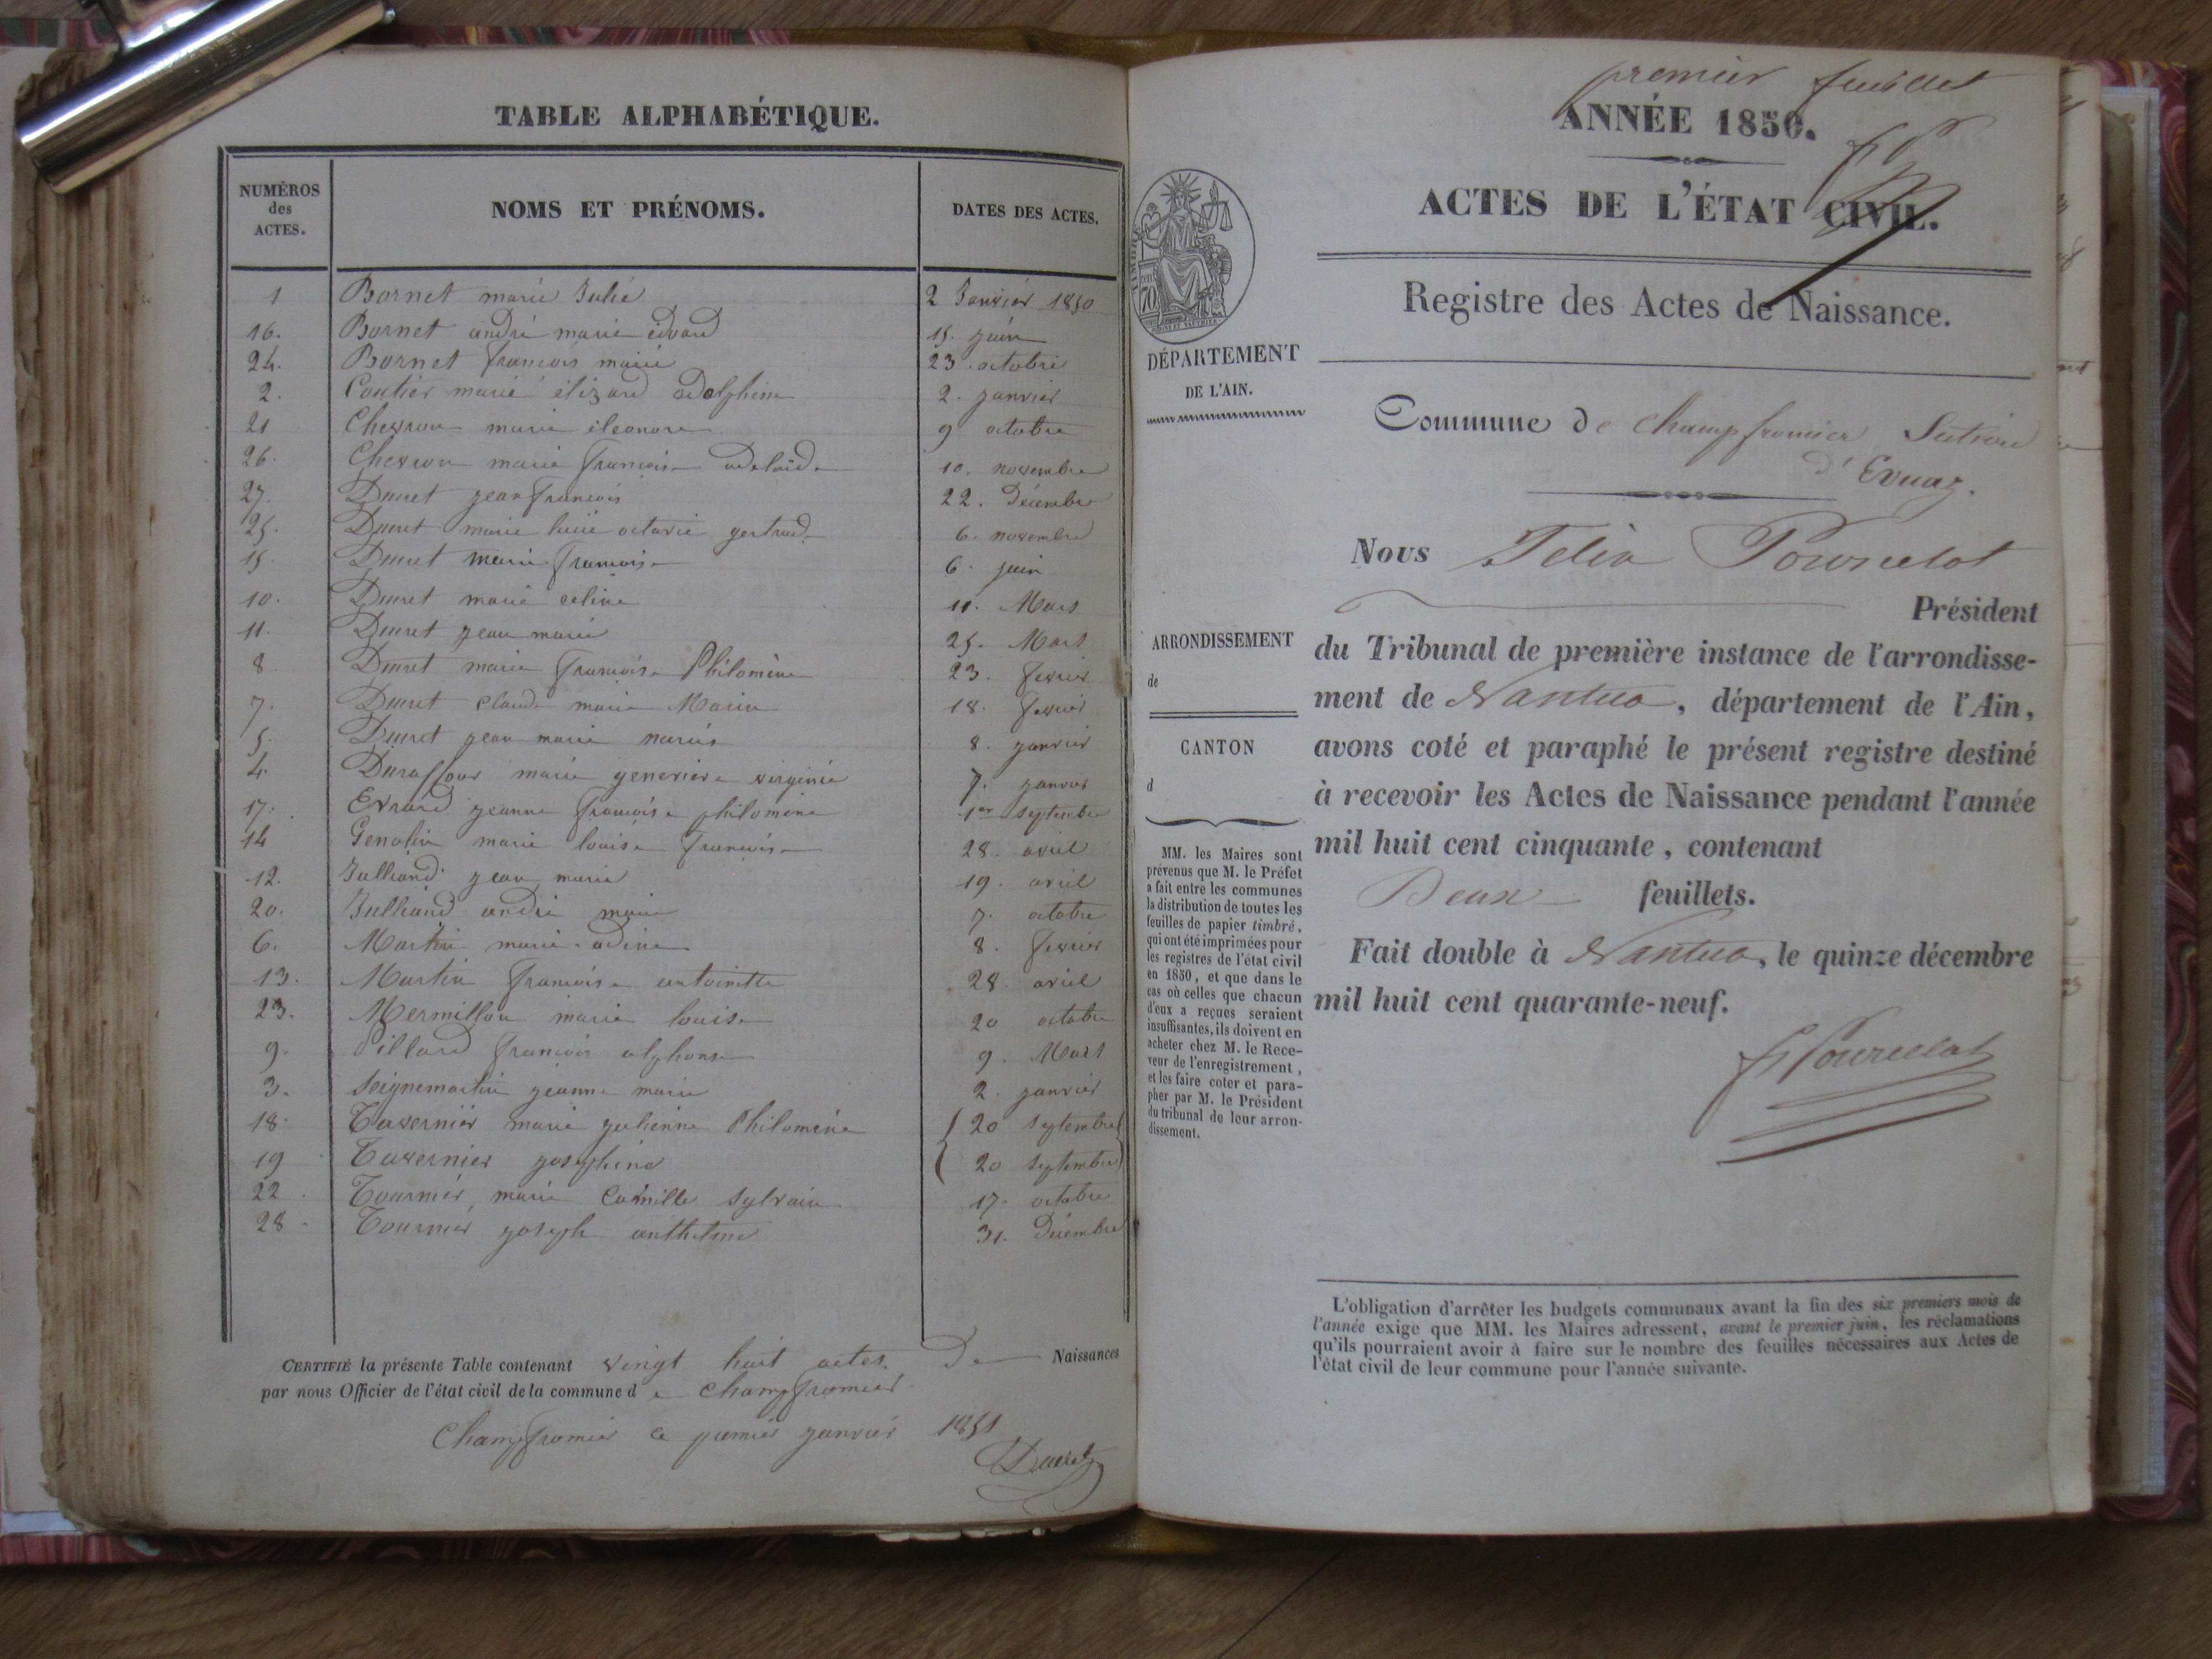 TABLE ALPHABÉTIQUE.
NUMÉROS
des
ACTES.
NOMS ET PRÉNOMS.
DATES DES ACTES.
1 Bornet marie Julie 2 Janvier 1850
16. Bornet andré marie édoard 15. juin
24. Bornet françois marie 23 octobre
2. Coutier marie élizard adolphine 2. janvier
21 Chevron marie éléonore 9 octobre
26. Chevron marie françoise adelaïde 10. novembre
27. Ducret jean françois 22. Décembre
25. Ducret marie lucie octavie gertrude 6. novembre
15 Ducret marie françoise 6. juin
10. Ducret marie celine 11. Mars
11. Ducret jean marie 25. Mars
8 Ducret marie françoise Philomène 23. fevrier
7. Ducret claude marie Marin 18. fevrier
5. Ducret jean marie marius 8. janvier
4. Duraffour marie geneviève virginie 7. janvier
17. Evrard jeanne françoise philomène 1er septembre
14 Genolin marie louise françoise 28. avril
12. Julliand jean marie 19. avril
20. Julliand andré marie 7. octobre
6. Martin marie adine 8. fevrier
13. Martin françoise antoinette 28. avril
23. Mermillon marie louise 20 octobre
9. Pillard françois alphonse 9. Mars
3. Seignemartin jeanne marie 2. janvier
18. Tavernier marie julienne Philomène 20 septembre
19 Tavernier josephine 20 septembre
22. Tournier marie Camille Sylvain 17. octobre
28. Tournier joseph anthelme 31. Décembre
CERTIFIÉ la présente Table contenant vingt huit actes. De Naissances
par nous Officier de l'état civil de la commune d e Champfromier
Champfromier ce premier janvier 1851
Ducret
premier feuillet
ANNÉE 1850.
ACTES DE L'ÉTAT CIVIL.
Registre des Actes de Naissance.
DÉPARTEMENT
DE L'AIN.
Commune de Champfromier Section
d'Evuaz.
Nous Félix Pourcelot
Président
ARRONDISSEMENT
de
du Tribunal de première instance de l'arrondisse-
ment de Nantua, département de l'Ain,
CANTON
d
avons coté et paraphé le présent registre destiné
à recevoir les Actes de Naissance pendant l'année
mil huit cent cinquante, contenant
Deux feuillets.
Fait double à Nantua, le quinze décembre
mil huit cent quarante-neuf.
F Pourcelot
MM. les Maires sont
prévenus que M. le Préfet
a fait entre les communes
la distribution de toutes les
feuilles de papier timbré,
qui ont été imprimées pour
les registres de l'état civil
en 1850, et que dans le
cas où celles que chacun
d'eux a reçues seraient
insuffisantes, ils doivent en
acheter chez M. le Rece-
veur de l'enregistrement,
et les faire coter et para-
pher par M. le Président
du tribunal de leur arron-
dissement.
L'obligation d'arrêter les budgets communaux avant la fin des six premiers mois de
l'année exige que MM. les Maires adressent, avant le premier juin, les réclamations
qu'ils pourraient avoir à faire sur le nombre des feuilles nécessaires aux Actes de
l'état civil de leur commune pour l'année suivante.